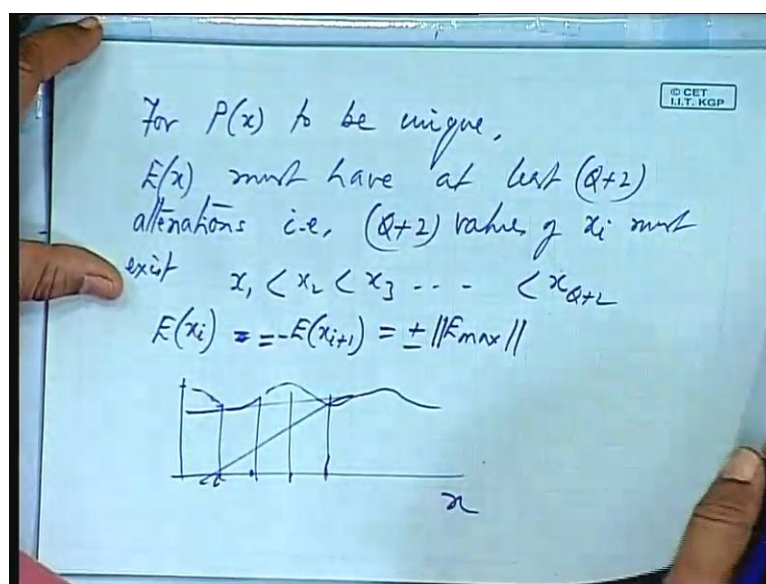 © CET
I.I.T. KGP
For P(x) to be unique,
E(x) must have at least (Q+2)
alternations i.e, (Q+2) values of xi must
exist x1 < x2 < x3 --- < xQ+2
E(xi) = = -E(xi+1) = ± ||Emax||
x